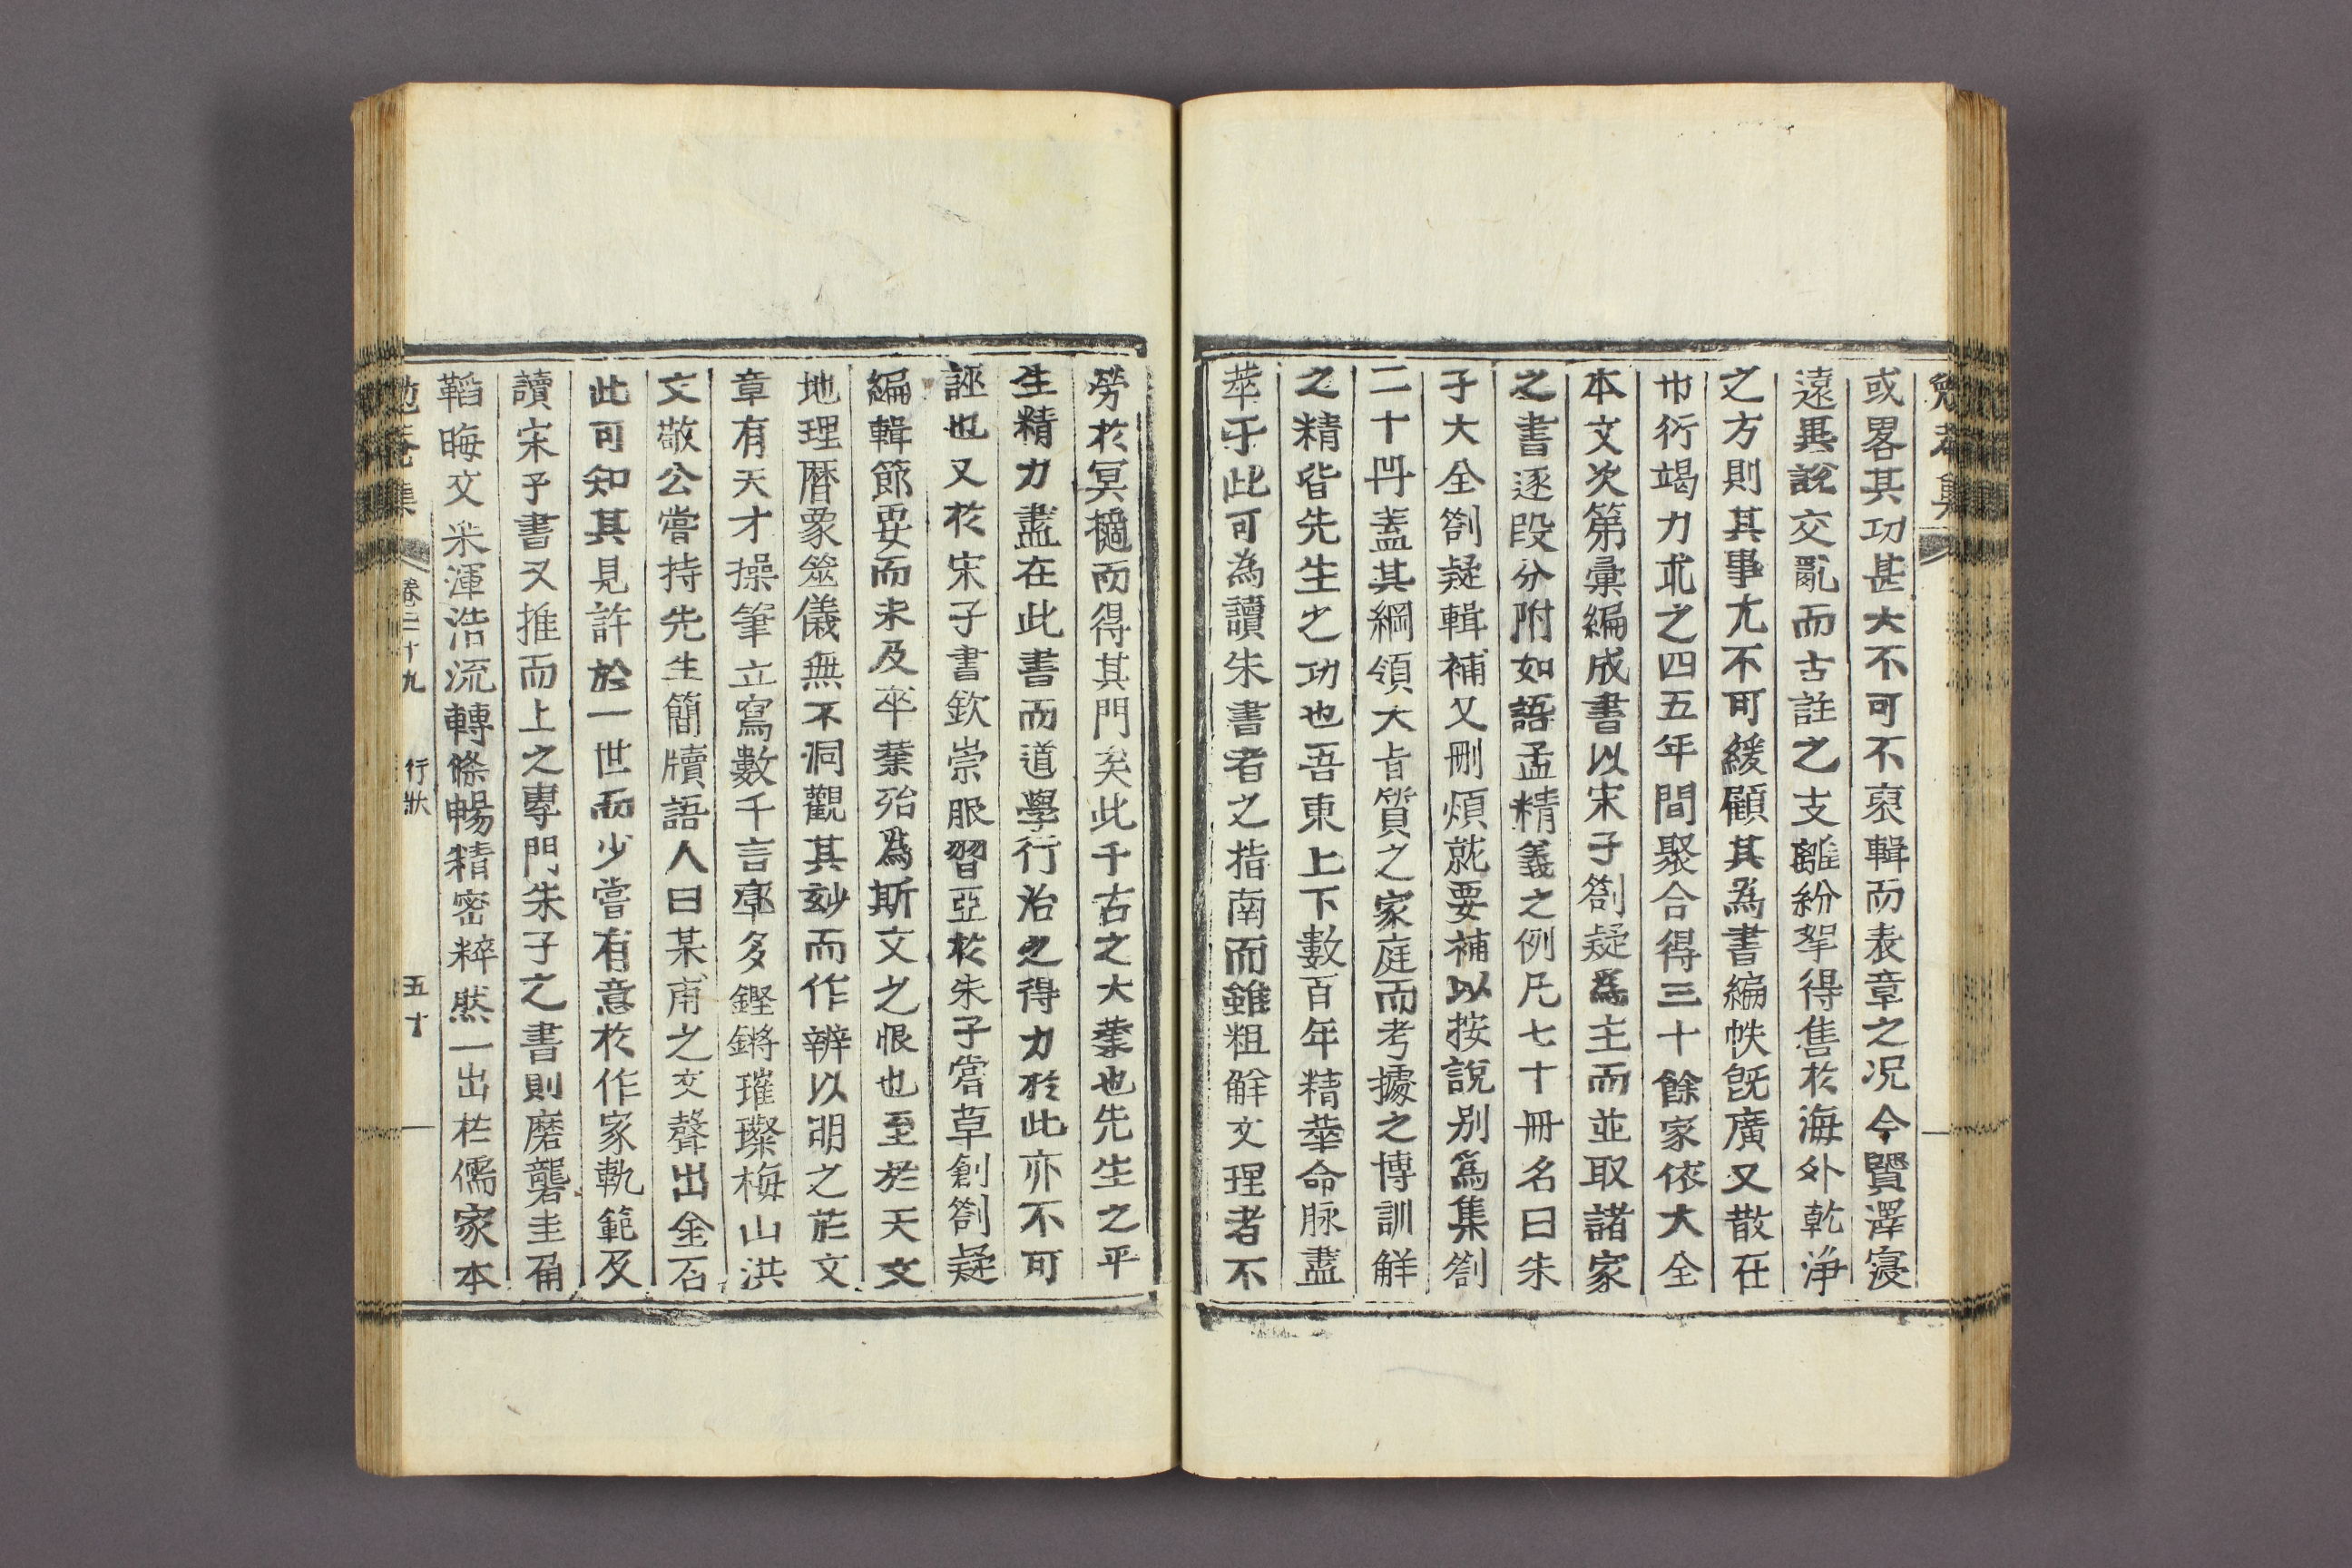 勉菴集
或畧其功甚大不可不裒輯而表章之况今賢澤寖
遠異說交亂而古註之支離紛挐得售於海外乾淨
之方則其事尤不可緩顧其為書編帙旣廣又散在
巾衍竭力求之四五年間聚合得三十餘家依大全
本文次第彙編成書以宋子劄疑爲主而並取諸家
之書逐段分附如語孟精義之例凡七十冊名曰朱
子大全劄疑輯補又刪煩就要補以按說别爲集劄
二十冊盖其綱領大旨質之家庭而考據之博訓觧
之精皆先生之功也吾東上下數百年精華命脉盡
萃于此可為讀朱書者之指南而雖粗觧文理者不
勞於冥擿而得其門矣此千古之大業也先生之平
生精力盡在此書而道學行治之得力於此亦不可
誣也又於宋子書欽崇服習亞於朱子嘗草創劄疑
編輯節要而未及卒業殆爲斯文之恨也至於天文
地理曆象筮儀無不洞觀其玅而作辨以明之於文
章有天才操筆立寫數千言率多鏗鏘璀璨梅山洪
文敬公嘗持先生簡牘語人曰某甫之文聲出金石
此可知其見許於一世而少嘗有意於作家軌範及
讀宋子書又推而上之專門朱子之書則磨礱圭角
韜晦文采渾浩流轉條暢精密粹然一出於儒家本
勉菴集 卷二十九 行狀 五十